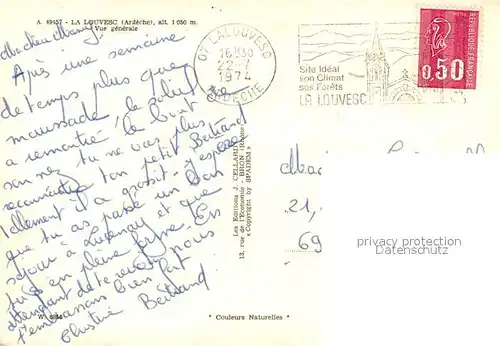 A. 49457 - LA LOUVESC (Ardèche), alt. 1 050 m.
Vue générale
07 LALOUVESC
16H30
22-7
1974
ARDECHE
Site Idéal
son Climat
ses Forêts
LA LOUVESC
REPUBLIQUE FRANCAISE
0,50
Après une semaine
de temps plus que
maussade, le soleil
a remontré le bout de
son nez, tu ne vas plus
reconnaître ton petit Bertrand
tellement il a grossit. J'espère
que tu as passé un bon
séjour à et que
tu es en pleine forme. En
attendant de te revoir, nous
t'embrassons bien fort
Christine Bertrand
Les Editions J. CELLARD
13, rue de l'Economie - BRON (Rhône)
"Copyright by SPADEM"
21,
69
privacy protection
Datenschutz
W. " Couleurs Naturelles "